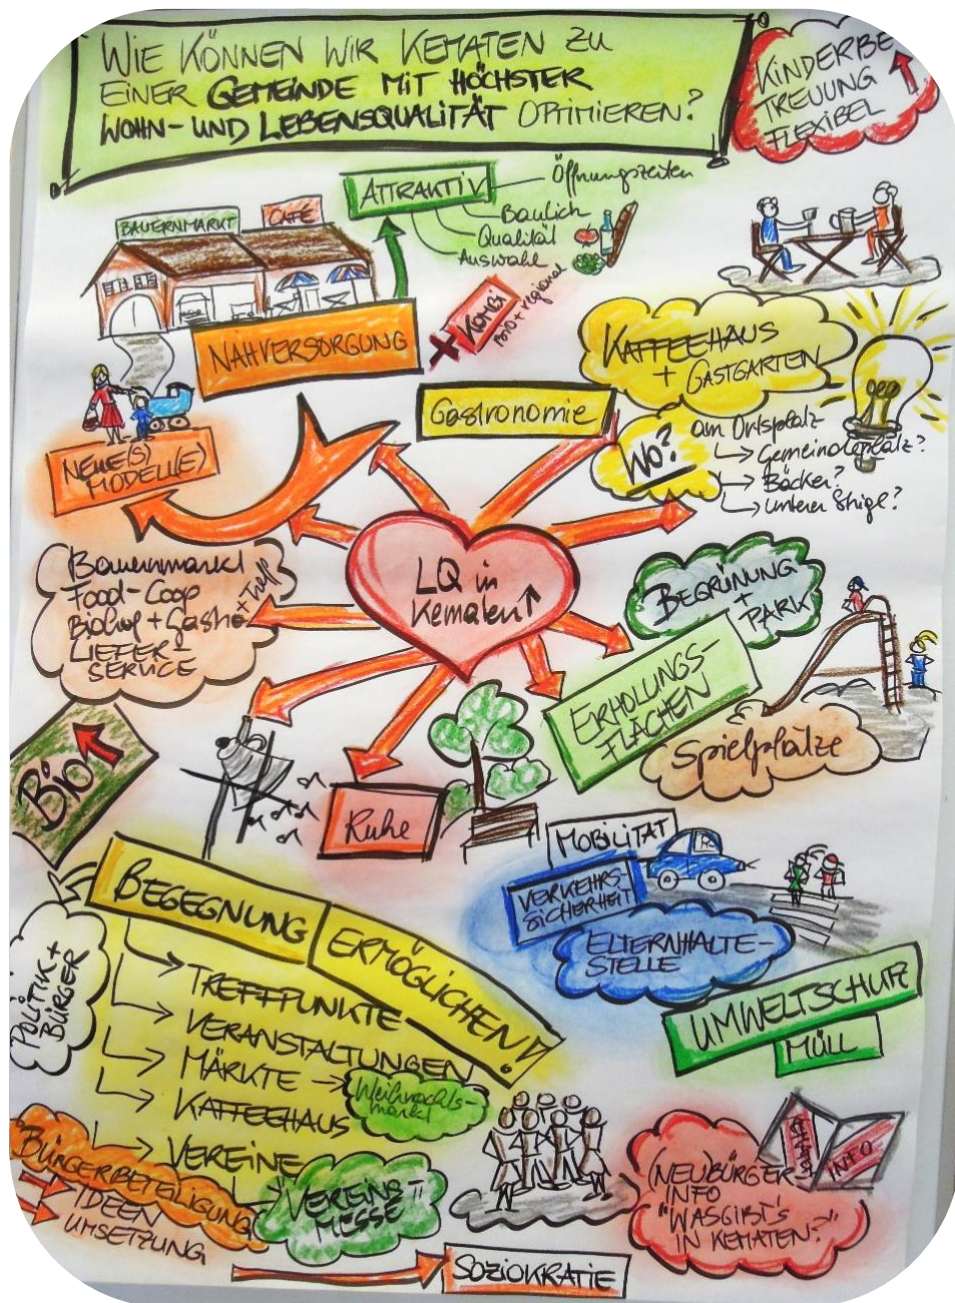 WIE KÖNNEN WIR KEMATEN ZU
EINER GEMEINDE MIT HÖCHSTER
WOHN- UND LEBENSQUALITÄT OPTIMIEREN?
KINDERBE
TREUUNG
FLEXIBEL
ATTRAKTIV
Öffnungszeiten
Baulich
Qualität
Auswahl
BAUERNMARKT
CAFÉ
NAHVERSORGUNG
+ KOMBI
+ regional
NEUE(S)
MODELL(E)
Gastronomie
KAFFEEHAUS
+ GASTGARTEN
WO?
am Ortsplatz
Gemeindeplatz?
Bäcker?
Unterer
LQ in
Kematen
Bauernmarkt
Food-Coop
+ Gastro + Treff
LIEFER-
SERVICE
BEGRÜNUNG
+
PARK
ERHOLUNGS-
FLÄCHEN
Spielplätze
Bio
Ruhe
MOBILITÄT
VERKEHRS-
SICHERHEIT
ELTERNHALTE-
STELLE
UMWELTSCHUTZ
MÜLL
BEGEGNUNG
ERMÖGLICHEN!
POLITIK +
BÜRGER
TREFFPUNKTE
VERANSTALTUNGEN
MÄRKTE
Weihnachts-
markt
KAFFEEHAUS
VEREINE
VEREINS-
MESSE
BÜRGERBETEILIGUNG
IDEEN
UMSETZUNG
SOZIOKRATIE
NEUBÜRGER
INFO
"WAS GIBT'S
IN KEMATEN?"
INFO